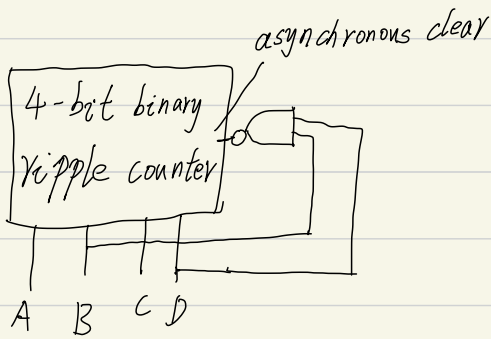 asynchronous clear
4-bit binary
ripple counter
A B C D